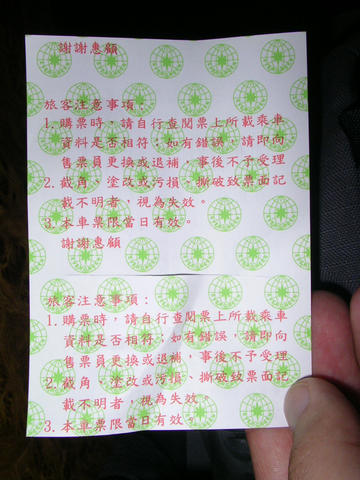 謝謝惠顧
旅客注意事項：
1.購票時，請自行查閱票上所載乘車
資料是否相符；如有錯誤，請即向
售票員更換或退補，事後不予受理
2.截角、塗改或污損、撕破致票面記
載不明者，視為失效。
3.本車票限當日有效。
謝謝惠顧
旅客注意事項：
1.購票時，請自行查閱票上所載乘車
資料是否相符；如有錯誤，請即向
售票員更換或退補，事後不予受理
2.截角、塗改或污損、撕破致票面記
載不明者，視為失效。
3.本車票限當日有效。